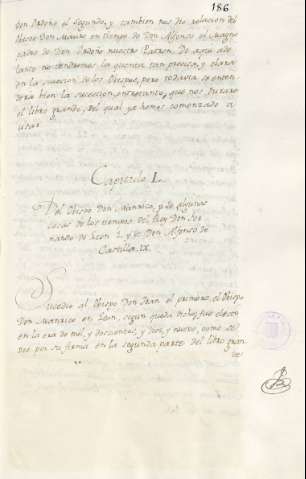 186
don Ordoño el segundo, y tambien nos dio relacion del
Obispo Don Mauro en tiempo de Don Alfonso el Magno
padre de Don Ordoño nuestro Patron. De aqui ade
lante no tendremos la quenta tan precisa, y clara
en la sucecion de los Obispos, pero todavia se enten
dera bien la sucecion, entretanto, que nos durare
el libro grande, del qual ya hemos comenzado a
usar.
Capitulo L.
Del Obispo Don Manrico, y de algunas
cosas de los tiempos del Rey Don Fer
nando de Leon 2. y de Don Alfonso de
Castilla. IX.
Sucedio al Obispo Don Juan el primero, el Obispo
Don Manrico en Leon, segun queda dicho, fue electo
en la era de mil, y doscientos, y diez, y nueve, como se
vee por su firma en la segunda parte del libro gran
de